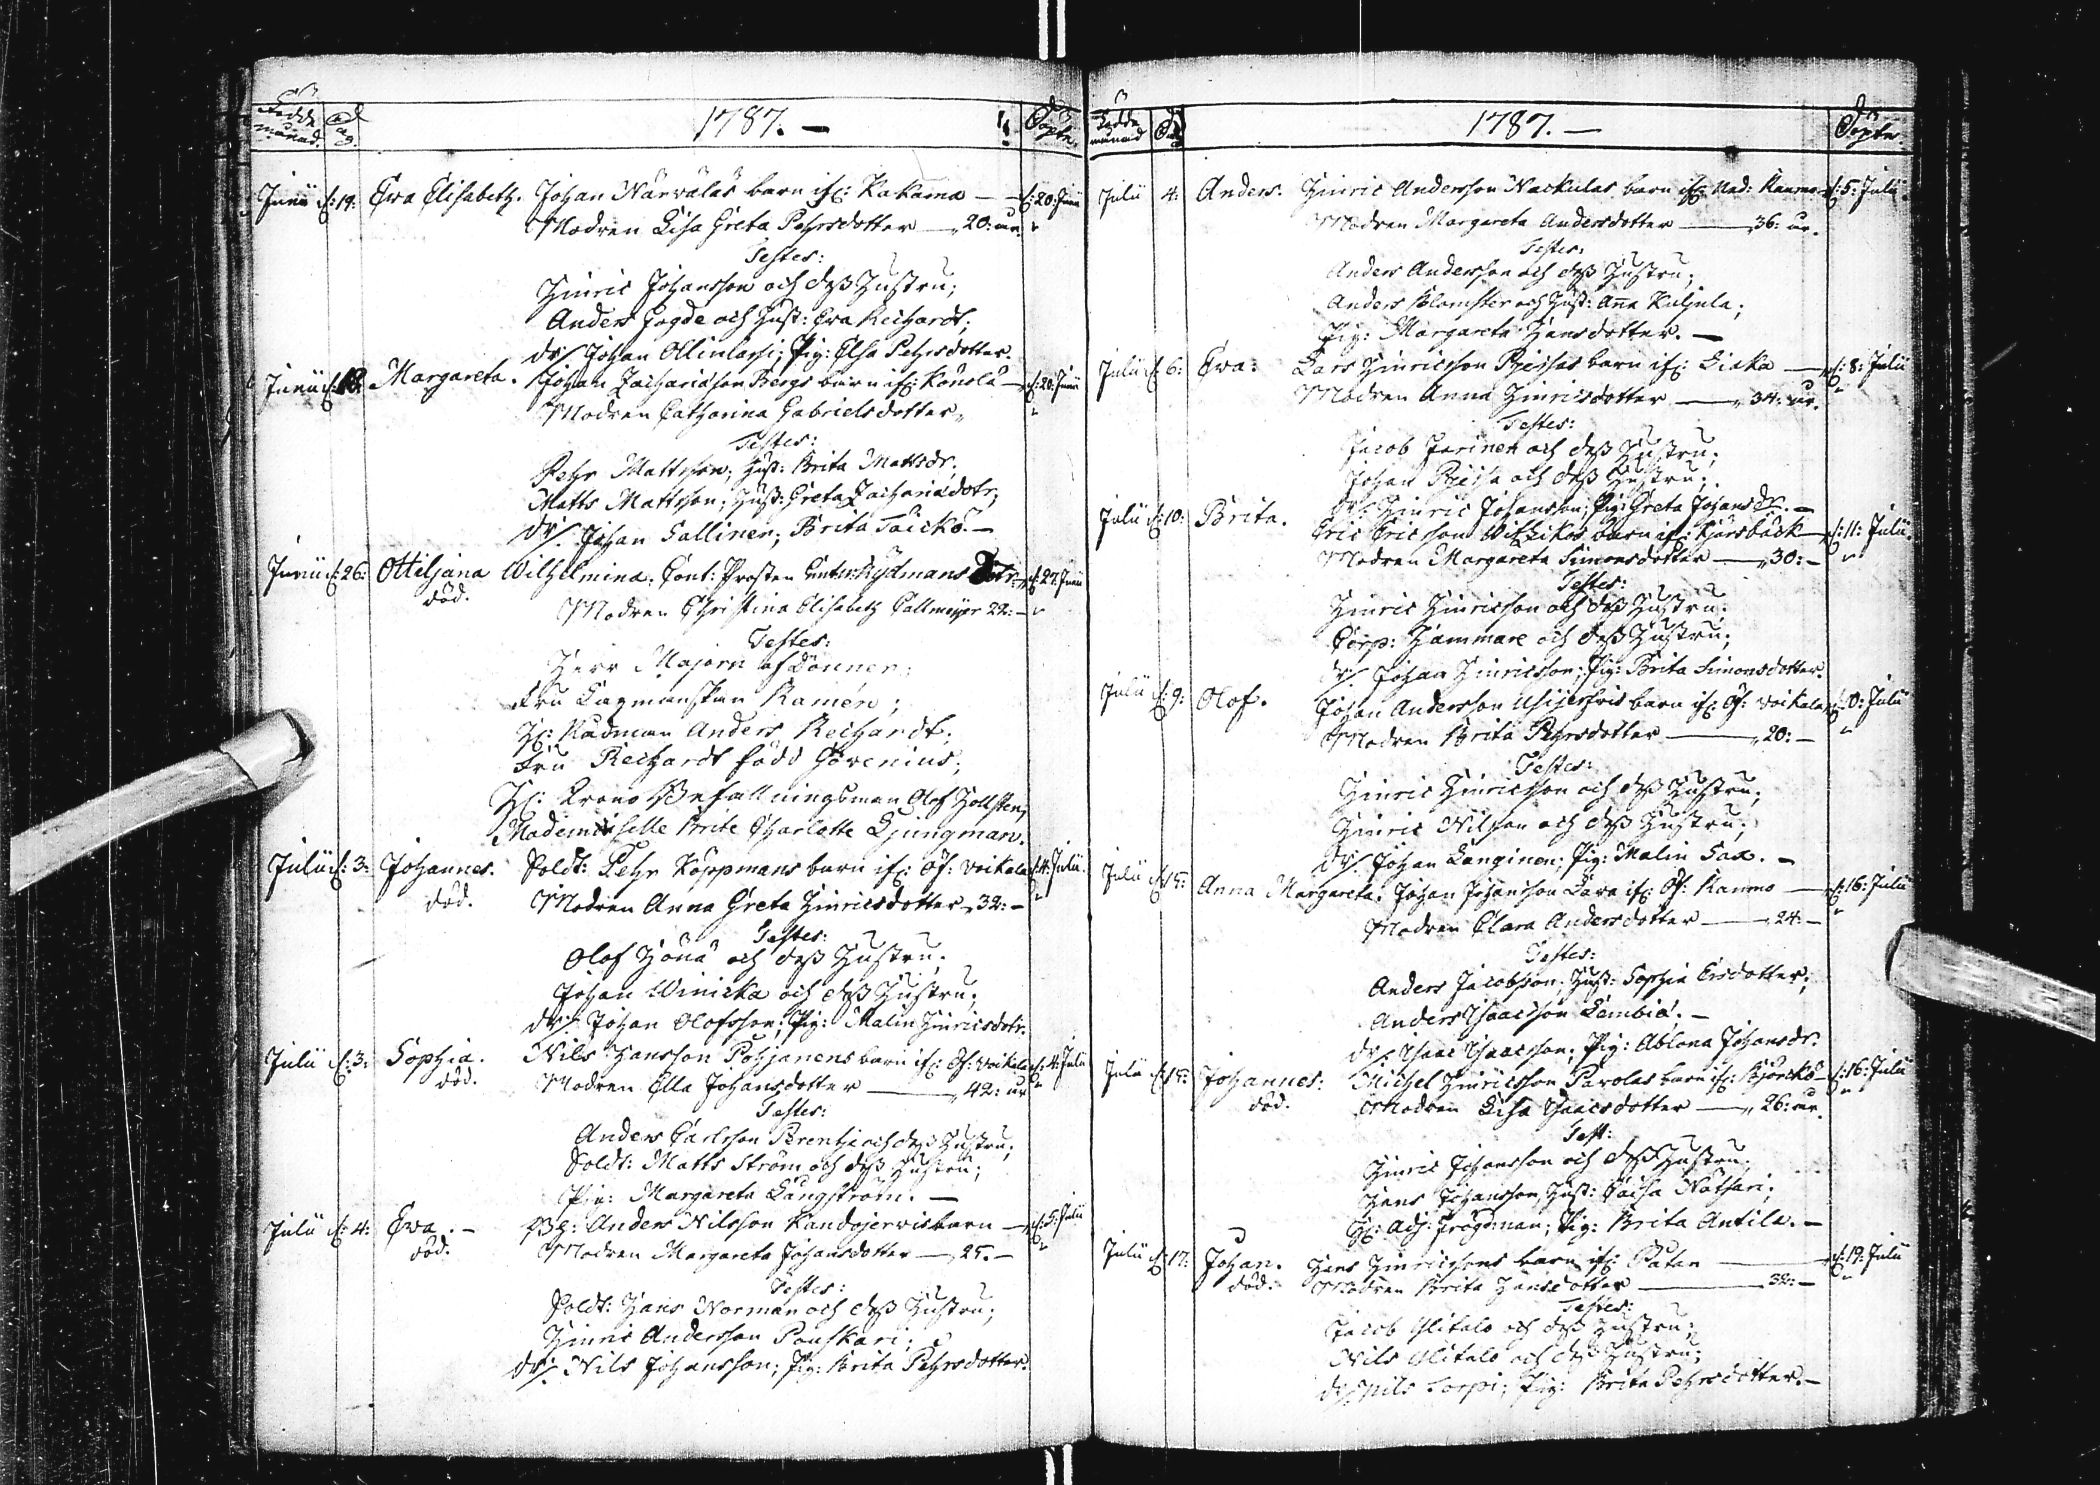 Födde månad. Dag. 1787. — Döpte.
Junii d: 19: Ewa Elisabeth. Johan Närväläs barn ifr: Kakama — d: 20: Junii
Modren Lisa Greta Pehrsdotter — 20: år.
Testes:
Hinric Johansson och dess Hustru;
Anders och Hust: Eva Reichardt;
dr/. Johan Ollinlassi; Pig: Elsa Pehrsdotter.
Junii d: Margareta. Johan Zachariasson Bergs barn ifr: Konola — d: 20: Junii
Modren Catharina Gabrielsdotter
Testes:
Pehr Mattsson; Hust: Brita Mattsdr.
Matts Mattsson; Hust: Greta Zachariædotr;
dr/. Johan Sallinen; Brita Täickö. —
Junii d: 26: Ottiljana Wilhelmina. Cont: Prosten Rydmans Dotr — d: 27: Junii
död. Modren Christina Elisabeth Callmeyer 22: —
Testes:
Herr Majorn af Donner;
Fru Lagmanskan Ramén;
Hr: Rådman Anders Reichardt;
Fru Reichardt född Hovenius;
Hr: Krono Befallningsman Olof Hollsten,
Mademoiselle Brite Charlotte Ljungman.
Julii d: 3: Johannes. Soldt: Pehr Koppmans barn ifr: Öf: Voikala d: 4: Julii
död. Modren Anna Greta Hinricsdotter 32: —
Testes:
Olof och dess Hustru;
Johan Winicka och dess Hustru;
dr/. Johan Olofsson; Pig: Malin Hinricsdotr.
Julii d: 3: Sophia. Nils Hansson Pohjanens barn ifr: Öf: Voikala d: 4: Julii
död. Modren Ella Johansdotter — 42: år
Testes:
Anders Carlsson Perentie och dess Hustru;
Soldt: Matts Ström och dess Hustru;
Pig: Margareta Långström. —
Julii d: 4: Ewa. — Anders Nilsson Kandojervis barn — d: 5: Julii
död. Modren Margareta Johansdotter — 25. —
Testes:
Soldt: Hans Norman och dess Hustru;
Hinric Andersson Pouskari;
dr/. Nils Johansson; Pig: Brita Pehrsdotter.
Födde månad Dag 1787. — Döpte.
Julii 4: Anders. Hinric Andersson Nackulas barn ifr: Ned: Raumo d: 5: Julii
Modren Margareta Andersdotter — 36: år.
Testes:
Anders Andersson och dess Hustru;
Anders Blomster och Hust: Anna Kuljula;
Pig: Margareta Hansdotter. —
Julii d: 6: Ewa: Lars Hinricsson Riessas barn ifr: Liaka — d: 8: Julii
Modren Anna Hinricsdotter — 34: år.
Testes:
Jacob Jarinen och dess Hustru;
Johan Riessa och dess Hustru;
dr/. Hinric Johansson; Pig: Greta Johansdr. —
Julii d: 10: Brita. Eric Ericsson Withikos barn ifr: Kjärsbäck — d: 11: Julii
Modren Margareta Simonsdotter — 30: —
Testes:
Hinric Hinricsson och dess Hustru;
Corp: Hammare och dess Hustru;
dr/. Johan Hinricsson; Pig: Brita Simonsdotter.
Julii d: 9: Olof. Johan Andersson barn ifr: Öf: Voikala d: 0: Julii
Modren Brita Pehrsdotter — 20: —
Testes:
Hinric Hinricsson och dess Hustru;
Hinric Nilsson och dess Hustru;
dr/. Johan Länginen; Pig: Malin Sax. —
Julii d: 15: Anna Margareta. Johan Johansson Lava ifr: Öf: Raumo — d: 16: Julii
Modren Clara Andersdotter — 24: —
Testes:
Anders Jacobsson; Hust: Sophia Ersdotter;
Anders Isaacsson Lambiä. —
dr/. Isaac Isaacsson; Pig: Ablona Johansdr.
Julii d: 15: Johannes: Michel Hinricsson Parolas barn ifr: Björckö d: 16: Julii
död. Modren Lisa Isaacsdotter — 26: år.
Test:
Hinric Johansson och dess Hustru;
Hans Johansson, Hust: Caisa Nathari;
Hr: Adj: Frogdman; Pig: Brita Antila. —
Julii d: 17: Johan. Hans Hinricssons barn ifr: Paten — d: 19: Julii
död. Modren Brita Hansdotter — 32: —
Testes:
Jacob Ylitalo och dess Hustru;
Nils Ylitalo och dess Hustru;
dr/. Nils Torpi; Pig: Brita Pehrsdotter. —